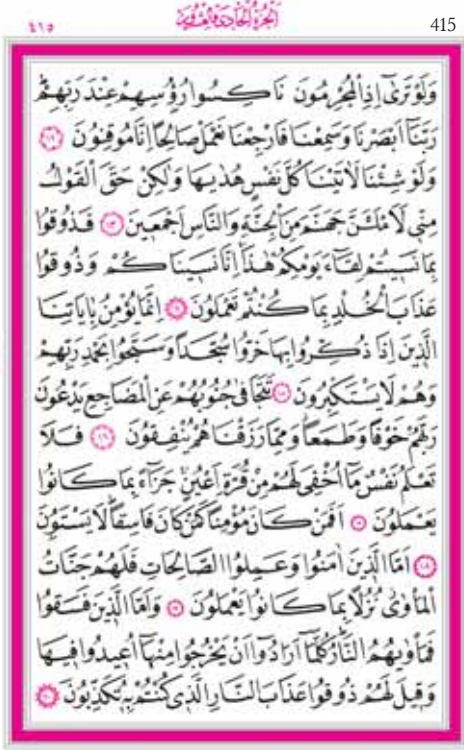 ٤١٥ الجزء الحادي والعشرون 415
وَلَوْ تَرٰٓى اِذِ الْمُجْرِمُونَ نَاكِسُوا رُؤُ۫سِهِمْ عِنْدَ رَبِّهِمْ
رَبَّنَٓا اَبْصَرْنَا وَسَمِعْنَا فَارْجِعْنَا نَعْمَلْ صَالِحًا اِنَّا مُوقِنُونَ ﴿١٢﴾
وَلَوْ شِئْنَا لَاٰتَيْنَا كُلَّ نَفْسٍ هُدٰيهَا وَلٰكِنْ حَقَّ الْقَوْلُ
مِنّ۪ي لَاَمْلَـَٔنَّ جَهَنَّمَ مِنَ الْجِنَّةِ وَالنَّاسِ اَجْمَع۪ينَ ﴿١٣﴾ فَذُوقُوا
بِمَا نَس۪يتُمْ لِقَٓاءَ يَوْمِكُمْ هٰذَاۚ اِنَّا نَس۪ينَاكُمْ وَذُوقُوا
عَذَابَ الْخُلْدِ بِمَا كُنْتُمْ تَعْمَلُونَ ﴿١٤﴾ اِنَّمَا يُؤْمِنُ بِاٰيَاتِنَا
الَّذ۪ينَ اِذَا ذُكِّرُوا بِهَا خَرُّوا سُجَّدًا وَسَبَّحُوا بِحَمْدِ رَبِّهِمْ
وَهُمْ لَا يَسْتَكْبِرُونَ ﴿١٥﴾ تَتَجَافٰى جُنُوبُهُمْ عَنِ الْمَضَاجِعِ يَدْعُونَ
رَبَّهُمْ خَوْفًا وَطَمَعًا وَمِمَّا رَزَقْنَاهُمْ يُنْفِقُونَ ﴿١٦﴾ فَلَا
تَعْلَمُ نَفْسٌ مَٓا اُخْفِيَ لَهُمْ مِنْ قُرَّةِ اَعْيُنٍۚ جَزَٓاءً بِمَا كَانُوا
يَعْمَلُونَ ﴿١٧﴾ اَفَمَنْ كَانَ مُؤْمِنًا كَمَنْ كَانَ فَاسِقًاۜ لَا يَسْتَوُ۫نَ
﴿١٨﴾ اَمَّا الَّذ۪ينَ اٰمَنُوا وَعَمِلُوا الصَّالِحَاتِ فَلَهُمْ جَنَّاتُ
الْمَأْوٰىۘ نُزُلًا بِمَا كَانُوا يَعْمَلُونَ ﴿١٩﴾ وَاَمَّا الَّذ۪ينَ فَسَقُوا
فَمَأْوٰيهُمُ النَّارُۜ كُلَّمَٓا اَرَادُٓوا اَنْ يَخْرُجُوا مِنْهَٓا اُع۪يدُوا ف۪يهَا
وَق۪يلَ لَهُمْ ذُوقُوا عَذَابَ النَّارِ الَّذ۪ي كُنْتُمْ بِه۪ تُكَذِّبُونَ ﴿٢٠﴾